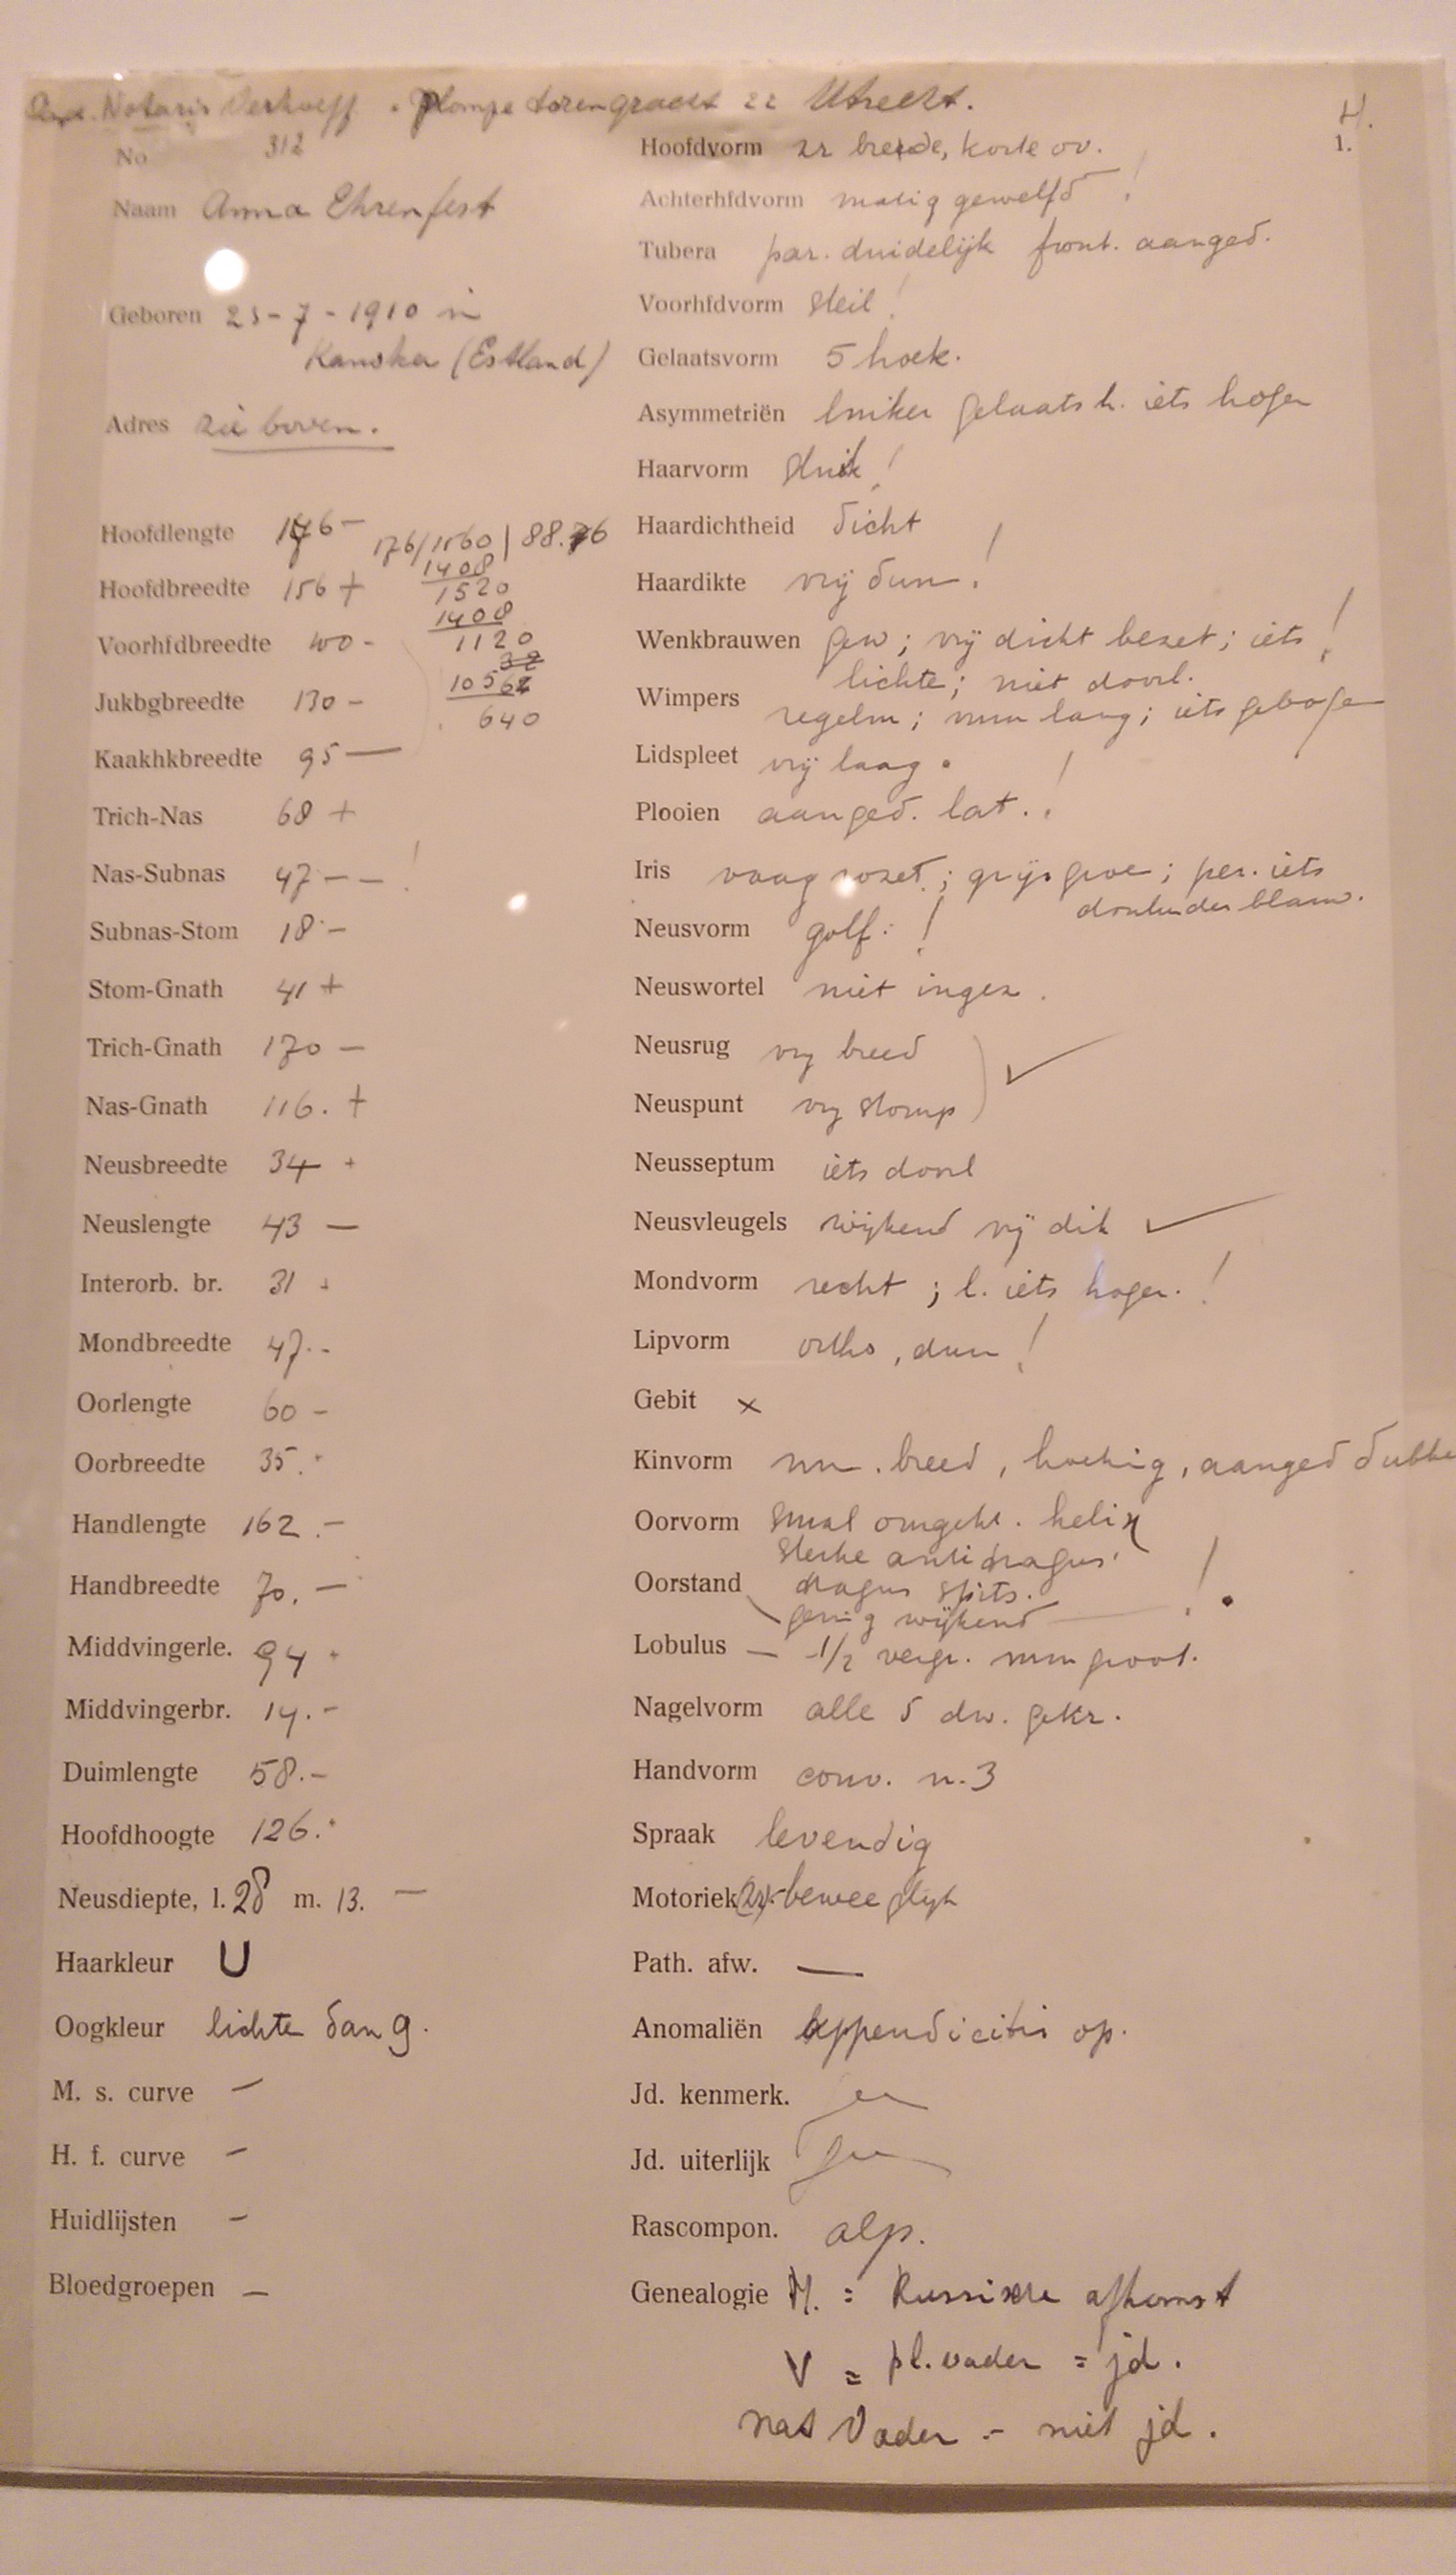 Notaris Verhoeff. Plompe torengracht 22 Utrecht.
H.
1.
No 312
Naam Anna Ehrenfest
Geboren 23-7-1910 in
Kanoka (Estland)
Adres zie boven.
Hoofdlengte 176 – 176/1560 | 88.76
1408
Hoofdbreedte 156 + 1520
1408
Voorhfdbreedte 100 - 1120
32
Jukbgbreedte 130 - 1056
640
Kaakhkbreedte 95 —
Trich-Nas 68 +
Nas-Subnas 47 – – !
Subnas-Stom 18 –
Stom-Gnath 41 +
Trich-Gnath 170 –
Nas-Gnath 116. +
Neusbreedte 34 +
Neuslengte 43 —
Interorb. br. 31 +
Mondbreedte 47.-
Oorlengte 60 –
Oorbreedte 35.
Handlengte 162 .–
Handbreedte 70. –
Middvingerle. 94 +
Middvingerbr. 14. –
Duimlengte 58.–
Hoofdhoogte 126.
Neusdiepte, l. 28 m. 13. —
Haarkleur U
Oogkleur lichte dan g.
M. s. curve –
H. f. curve –
Huidlijsten –
Bloedgroepen –
Hoofdvorm zr brede, korte ov.
Achterhfdvorm matig gewelfd !
Tubera par. duidelijk front. aanged.
Voorhfdvorm steil !
Gelaatsvorm 5 hoek.
Asymmetriën linker gelaats h. iets hoger
Haarvorm sluik !
Haardichtheid dicht
Haardikte vrij dun. !
Wenkbrauwen gew; vrij dicht bezet; iets !
lichte; niet doorl.
Wimpers regelm; nrm lang; iets gebogen
Lidspleet vrij laag .
Plooien aanged. lat. . !
Iris vaag rozet.; grijs groe; per. iets
donkerder blauw.
Neusvorm golf. !
Neuswortel niet ingez.
Neusrug vrij breed
Neuspunt vrij stomp
Neusseptum iets doorl
Neusvleugels wijkend vrij dik
Mondvorm recht ; l. iets hoger. !
Lipvorm ortho, dun !
Gebit x
Kinvorm nrm. breed, hoekig, aanged dubbe
Oorvorm smal omgekr. helix
sterke antitragus
Oorstand tragus spits.
gering wijkend !
Lobulus — -1/2 vergr. nrm groot.
Nagelvorm alle 5 dw. gekr.
Handvorm conv. n. 3
Spraak levendig
Motoriek (zr) beweeglijk
Path. afw. —
Anomaliën Appendicitis op.
Jd. kenmerk.
Jd. uiterlijk
Rascompon. alp.
Genealogie M. = Russische afkomst
V = pl. vader = jd.
nat Vader - niet jd.